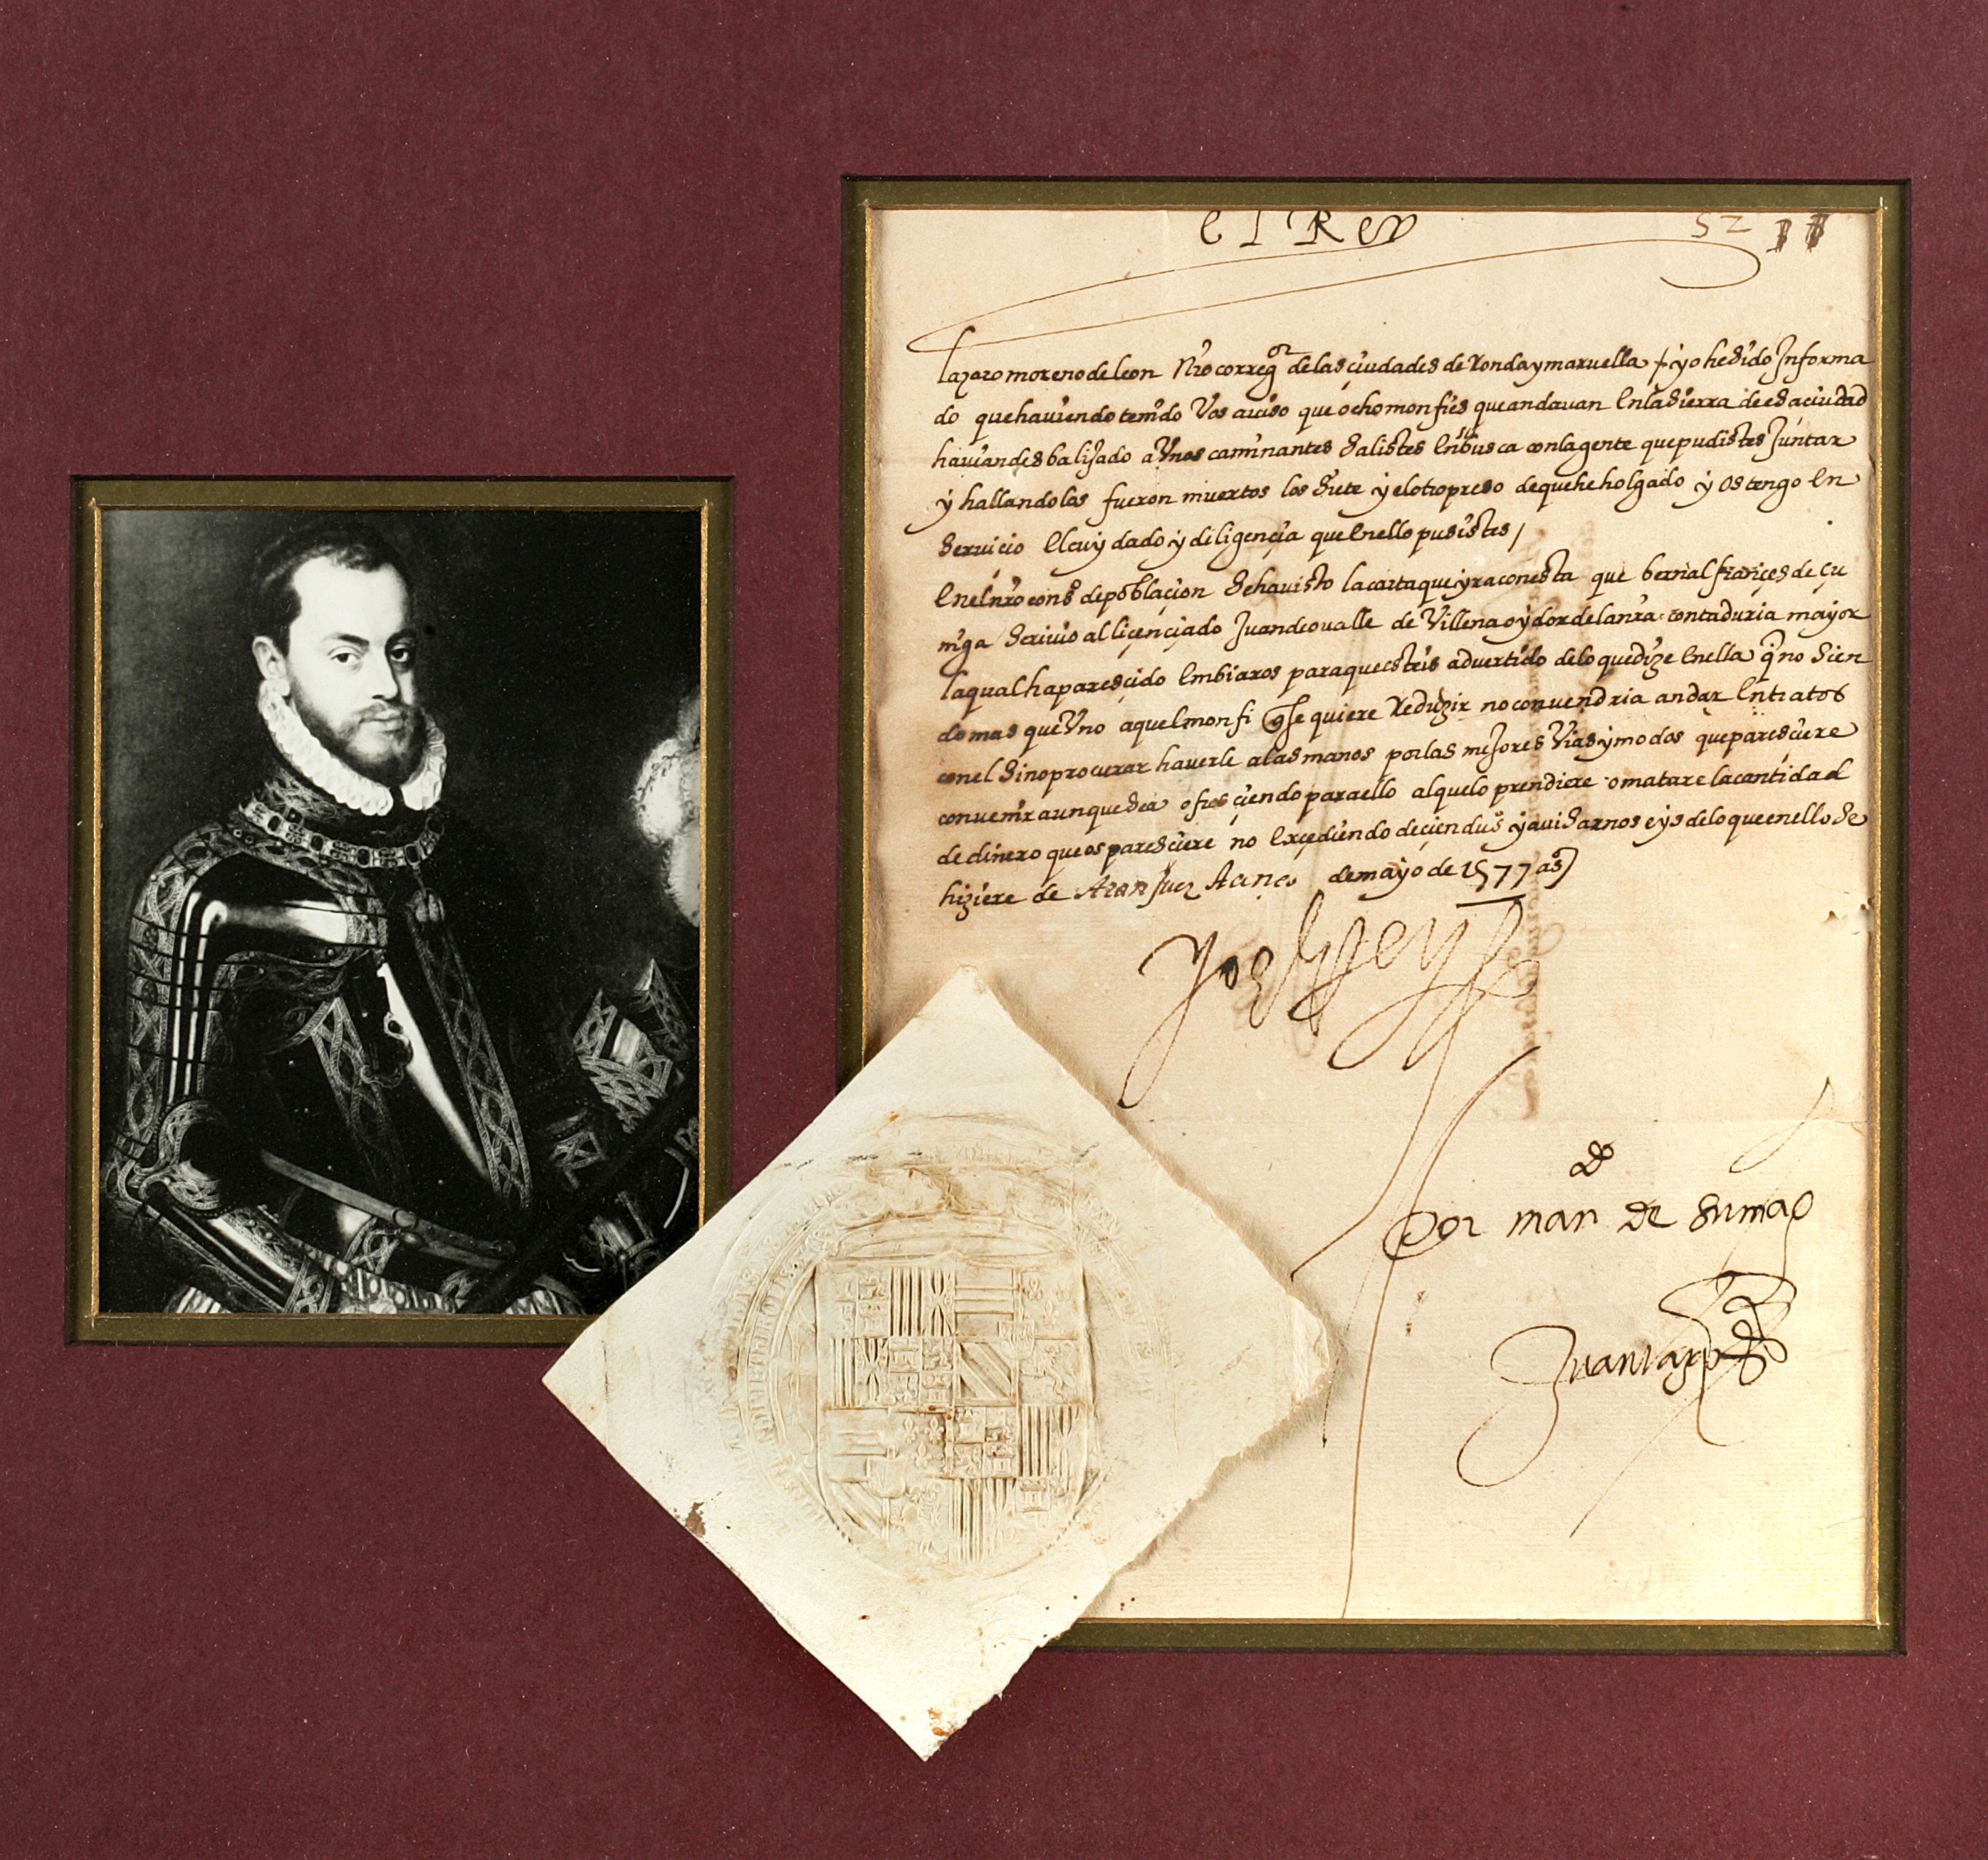 el Rey
52
lazaro moreno de leon nro correg or de las çiudades de Ronda y maruella / yo he sido Informa
do que hauiendo tenido Vos auiso que ocho monfies que andauan en la Sierra de esa ciudad
hauian desbalijado a Unos caminantes salistes en su busca con la gente que pudistes Juntar
y hallandolos fueron muertos los siete y el otro preso de que he holgado y os tengo en
seruicio el cuydado y diligençia que en ello pusistes /
en el nro cons o de poblaçion se ha uisto la carta que yra con esta que bernal françes de çu
niga scriuio al liçençiado Juan de oualle de Villena oydor de la nra contaduria mayor
la qual ha paresçido embiaros para que esteis aduertido de lo que dize en ella q no sien
do mas que Uno aquel monfi q se quiere Reduzir no conuendria andar en tratos
con el sino procurar hauerle a las manos por las mejores Vias y modos que paresçiere
conuenir aunque sea ofresçiendo para ello al que lo prendiere o matare la cantidad
de dinero que os paresçiere no exçediendo de çien du s y auisarnos eys de lo que en ello se
hiziere de Aranjuez A cinco de mayo de 1577 as
yo el Rey
Por man do de su mag d
Juan